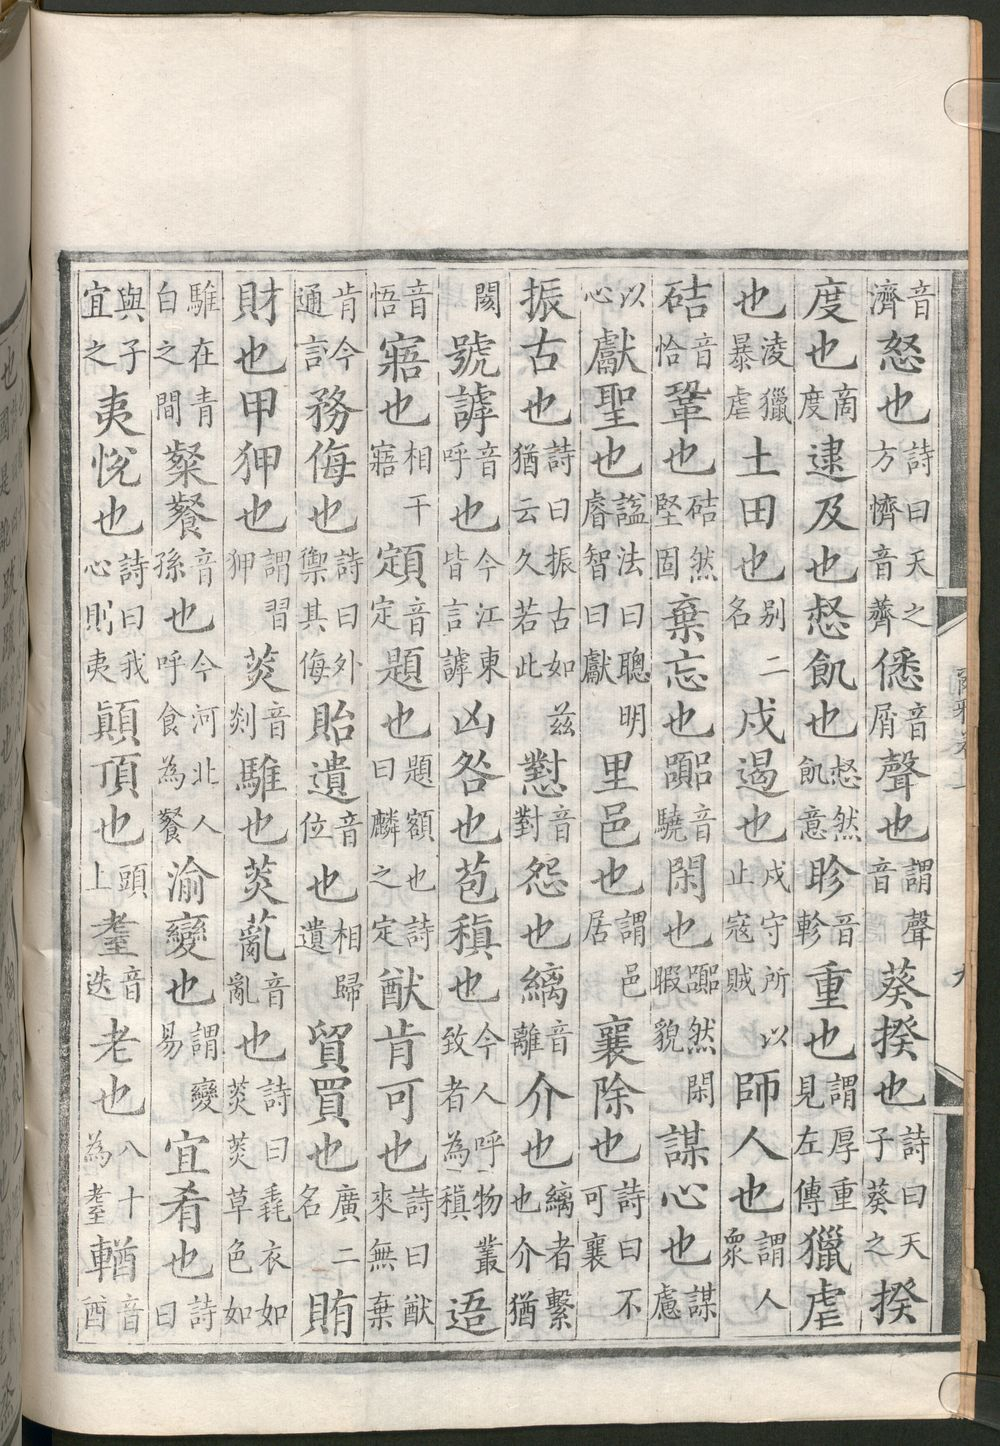 音濟怒也詩曰天之方懠音薺僁音屑聲也謂聲音葵揆也詩曰天子葵之揆
度也商度逮及也惄飢也惄然飢意眕音軫重也謂厚重見左傳獵虐
也淩獵暴虐土田也別二名戍遏也戍守所以止寇賊師人也謂人眾
硈音恰鞏也硈然堅固棄忘也嚻音驍閑也嚻然閑暇貌謀心也謀慮
以心獻聖也謚法曰聰明睿智曰獻里邑也謂邑居襄除也詩曰不可襄
振古也詩曰振古如茲猶云久若此懟音對怨也縭音離介也縭者繫也介猶
閡號謼音呼也今江東皆言謼凶咎也苞稹也今人呼物叢致者為稹逜
音悟寤也相干寤顁音定題也題額也詩曰麟之定猷肯可也詩曰猷來無棄
肯今通言務侮也詩曰外禦其侮貽遺音位也相歸遺貿買也廣二名賄
財也甲狎也謂習狎菼音剡騅也菼薍音亂也詩曰毳衣如菼菼草色如
騅在青白之間粲餐音孫也今河北人呼食為餐渝變也謂變易宜肴也詩曰
與子宜之夷悅也詩曰我心則夷顚頂也頭上耋音迭老也八十為耋輶音酋